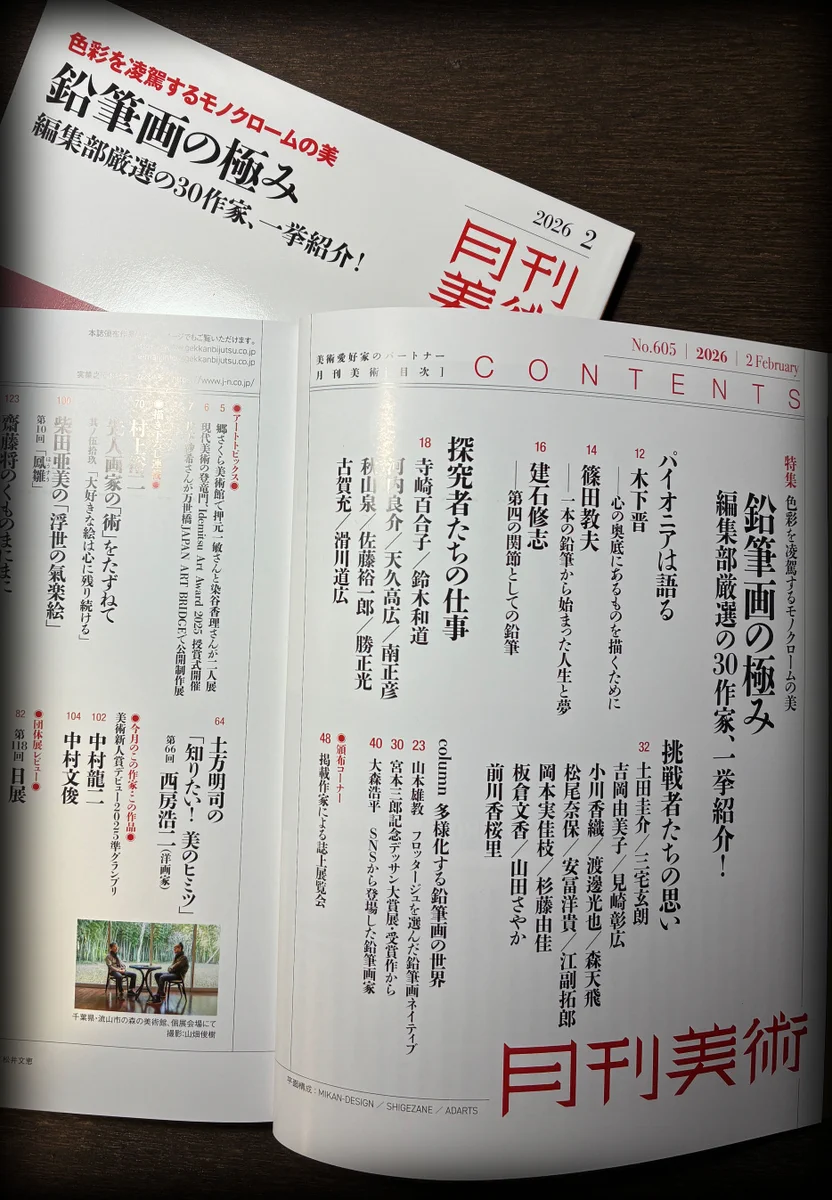 色彩を凌駕するモノクロームの美
鉛筆画の極み
編集部厳選の30作家、一挙紹介!
2026 2
月刊
美術
美術愛好家のパートナー
月刊美術[目次]
CONTENTS
No.605 | 2026 | 2 February
特集 色彩を凌駕するモノクロームの美
鉛筆画の極み
編集部厳選の30作家、一挙紹介!
パイオニアは語る
12 木下晋
―心の奥底にあるものを描くために
14 篠田教夫
―一本の鉛筆から始まった人生と夢
16 建石修志
―第四の関節としての鉛筆
探究者たちの仕事
18 寺崎百合子/鈴木和道
河内良介/天久高広/南正彦
秋山泉/佐藤裕一郎/勝正光
古賀充/滑川道広
挑戦者たちの思い
32 土田圭介/三宅玄朗
吉岡由美子/見崎彰広
小川香織/渡邊光也/森天飛
松尾奈保/安冨洋貴/江副拓郎
岡本実佳枝/杉藤由佳
板倉文香/山田さやか
前川香桜里
column 多様化する鉛筆画の世界
23 山本雄教 フロッタージュを選んだ鉛筆画ネイティブ
30 宮本三郎記念デッサン大賞展・受賞作から
40 大森浩平 SNSから登場した鉛筆画家
●頒布コーナー
48 掲載作家による誌上展覧会
月刊美術
平面構成:MIKAN-DESIGN / SHIGEZANE / ADARTS
ページでもご覧いただけます。
gekkanbijutsu.co.jp
gekkanbijutsu.co.jp
/www.j-n.co.jp/
●アートトピックス●
5 郷さくら美術館で押元一敏さんと染谷香理さんが二人展
6 現代美術の登竜門「Idemitsu Art Award 2025」授賞式開催
7 さんが万世橋「JAPAN ART BRIDGE」で公開制作展
70 村上裕二
美人画家の「術」をたずねて
其ノ伍拾玖「大好きな絵は心に残り続ける」
109 柴田亜美の「浮世の氣楽絵」
第10回「鳳雛」
123 齋藤将のくものまにまに
64 土方明司の
「知りたい! 美のヒミツ」
第66回 西房浩二(洋画家)
●今月のこの作家・この作品●
美術新人賞デビュー2025準グランプリ
102 中村龍二
104 中村文俊
●団体展レビュー●
82 第118回 日展
千葉県・流山市の森の美術館、個展会場にて
撮影:山畑俊樹
松井文恵